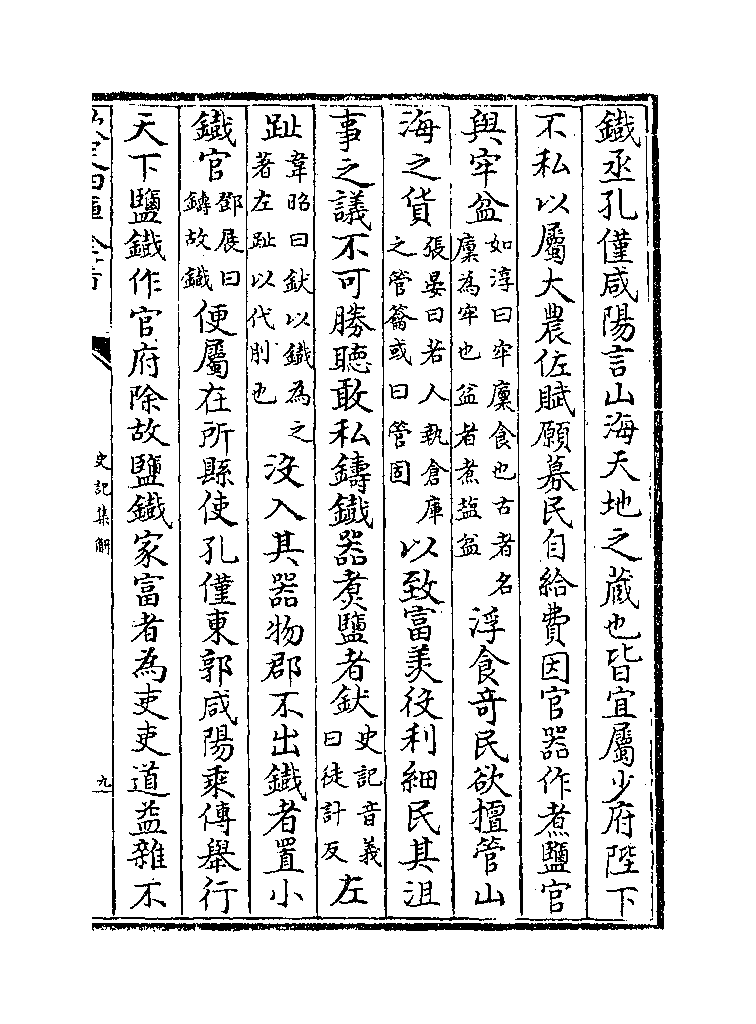 鐵丞孔僅咸陽言山海天地之藏也皆宜屬少府陛下
不私以屬大農佐賦願募民自給費因官器作煮鹽官
與牢盆如淳曰牢廩食也古者名廩為牢也盆者煮鹽盆浮食奇民欲擅管山
海之貨張晏曰若人執倉庫之管籥或曰管固以致富羡役利細民其沮
事之議不可勝聽敢私鑄鐵器煑鹽者釱史記音義曰徒計反左
趾韋昭曰釱以鐵為之著左趾以代刖也沒入其器物郡不出鐵者置小
鐵官鄧展曰鑄故鐵便屬在所縣使孔僅東郭咸陽乘傳舉行
天下鹽鐵作官府除故鹽鐵家富者為吏吏道益雜不
史記集解
九